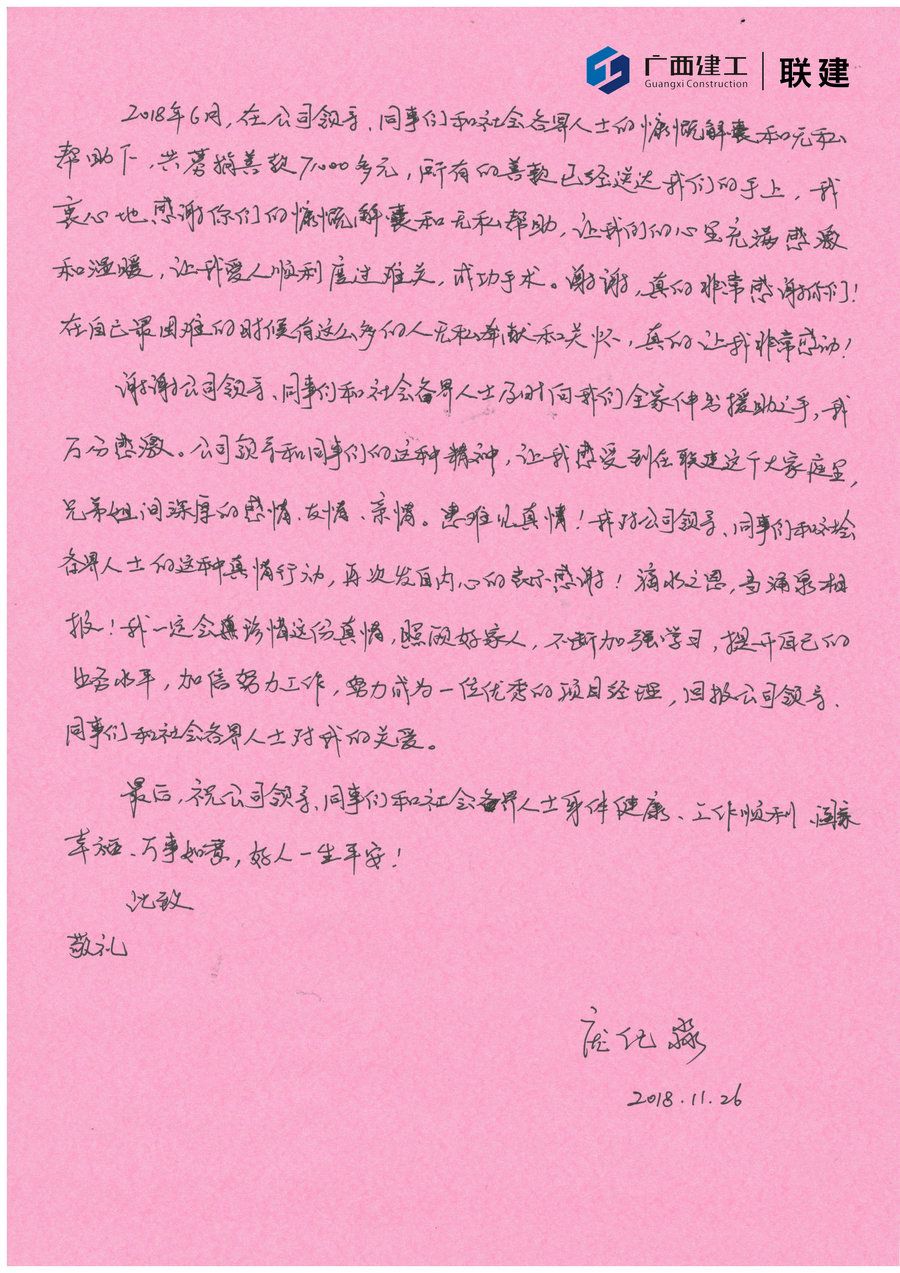 广西建工
Guangxi Construction
联建
2018年6月,在公司领导、同事们和社会各界人士的慷慨解囊和无私
帮助下,共募捐善款71000多元,所有的善款已经送达我们的手上,我
衷心地感谢你们的慷慨解囊和无私帮助,让我们的心里充满感激
和温暖,让我爱人顺利度过难关,成功手术。谢谢,真的非常感谢你们!
在自己最困难的时候有这么多的人无私奉献和关怀,真的让我非常感动!
谢谢公司领导、同事们和社会各界人士及时向我们全家伸出援助之手,我
万分感激。公司领导和同事们的这种精神,让我感受到在联建这个大家庭里,
兄弟姐间深厚的感情、友情、亲情。患难见真情!我对公司领导、同事们和社会
各界人士的这种真情行动,再次发自内心的表示感谢!滴水之恩,当涌泉相
报!我一定会珍惜这份真情,照顾好家人,不断加强学习,提升自己的
业务水平,加倍努力工作,努力成为一位优秀的项目经理,回报公司领导、
同事们和社会各界人士对我的关爱。
最后,祝公司领导、同事们和社会各界人士身体健康、工作顺利、阖家
幸福、万事如意,好人一生平安!
此致
敬礼
2018.11.26